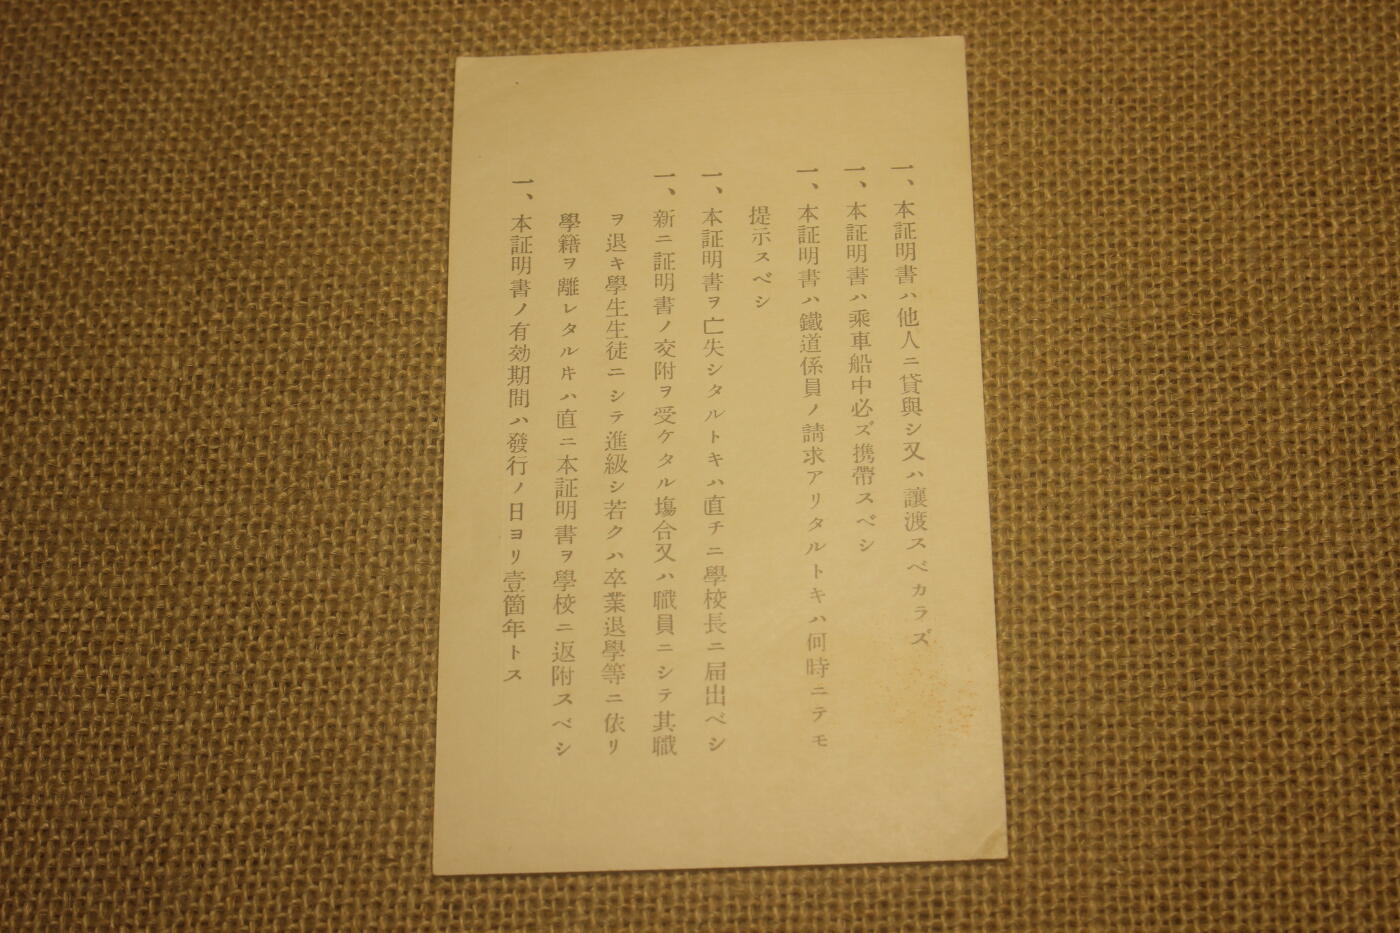 一、本証明書ハ他人ニ貸與シ又ハ讓渡スベカラズ
一、本証明書ハ乘車船中必ズ携帶スベシ
一、本証明書ハ鐵道係員ノ請求アリタルトキハ何時ニテモ
提示スベシ
一、本証明書ヲ亡失シタルトキハ直チニ學校長ニ届出ベシ
一、新ニ証明書ノ交附ヲ受ケタル塲合又ハ職員ニシテ其職
ヲ退キ學生生徒ニシテ進級シ若クハ卒業退學等ニ依リ
學籍ヲ離レタル片ハ直ニ本証明書ヲ學校ニ返附スベシ
一、本証明書ノ有効期間ハ發行ノ日ヨリ壹箇年トス